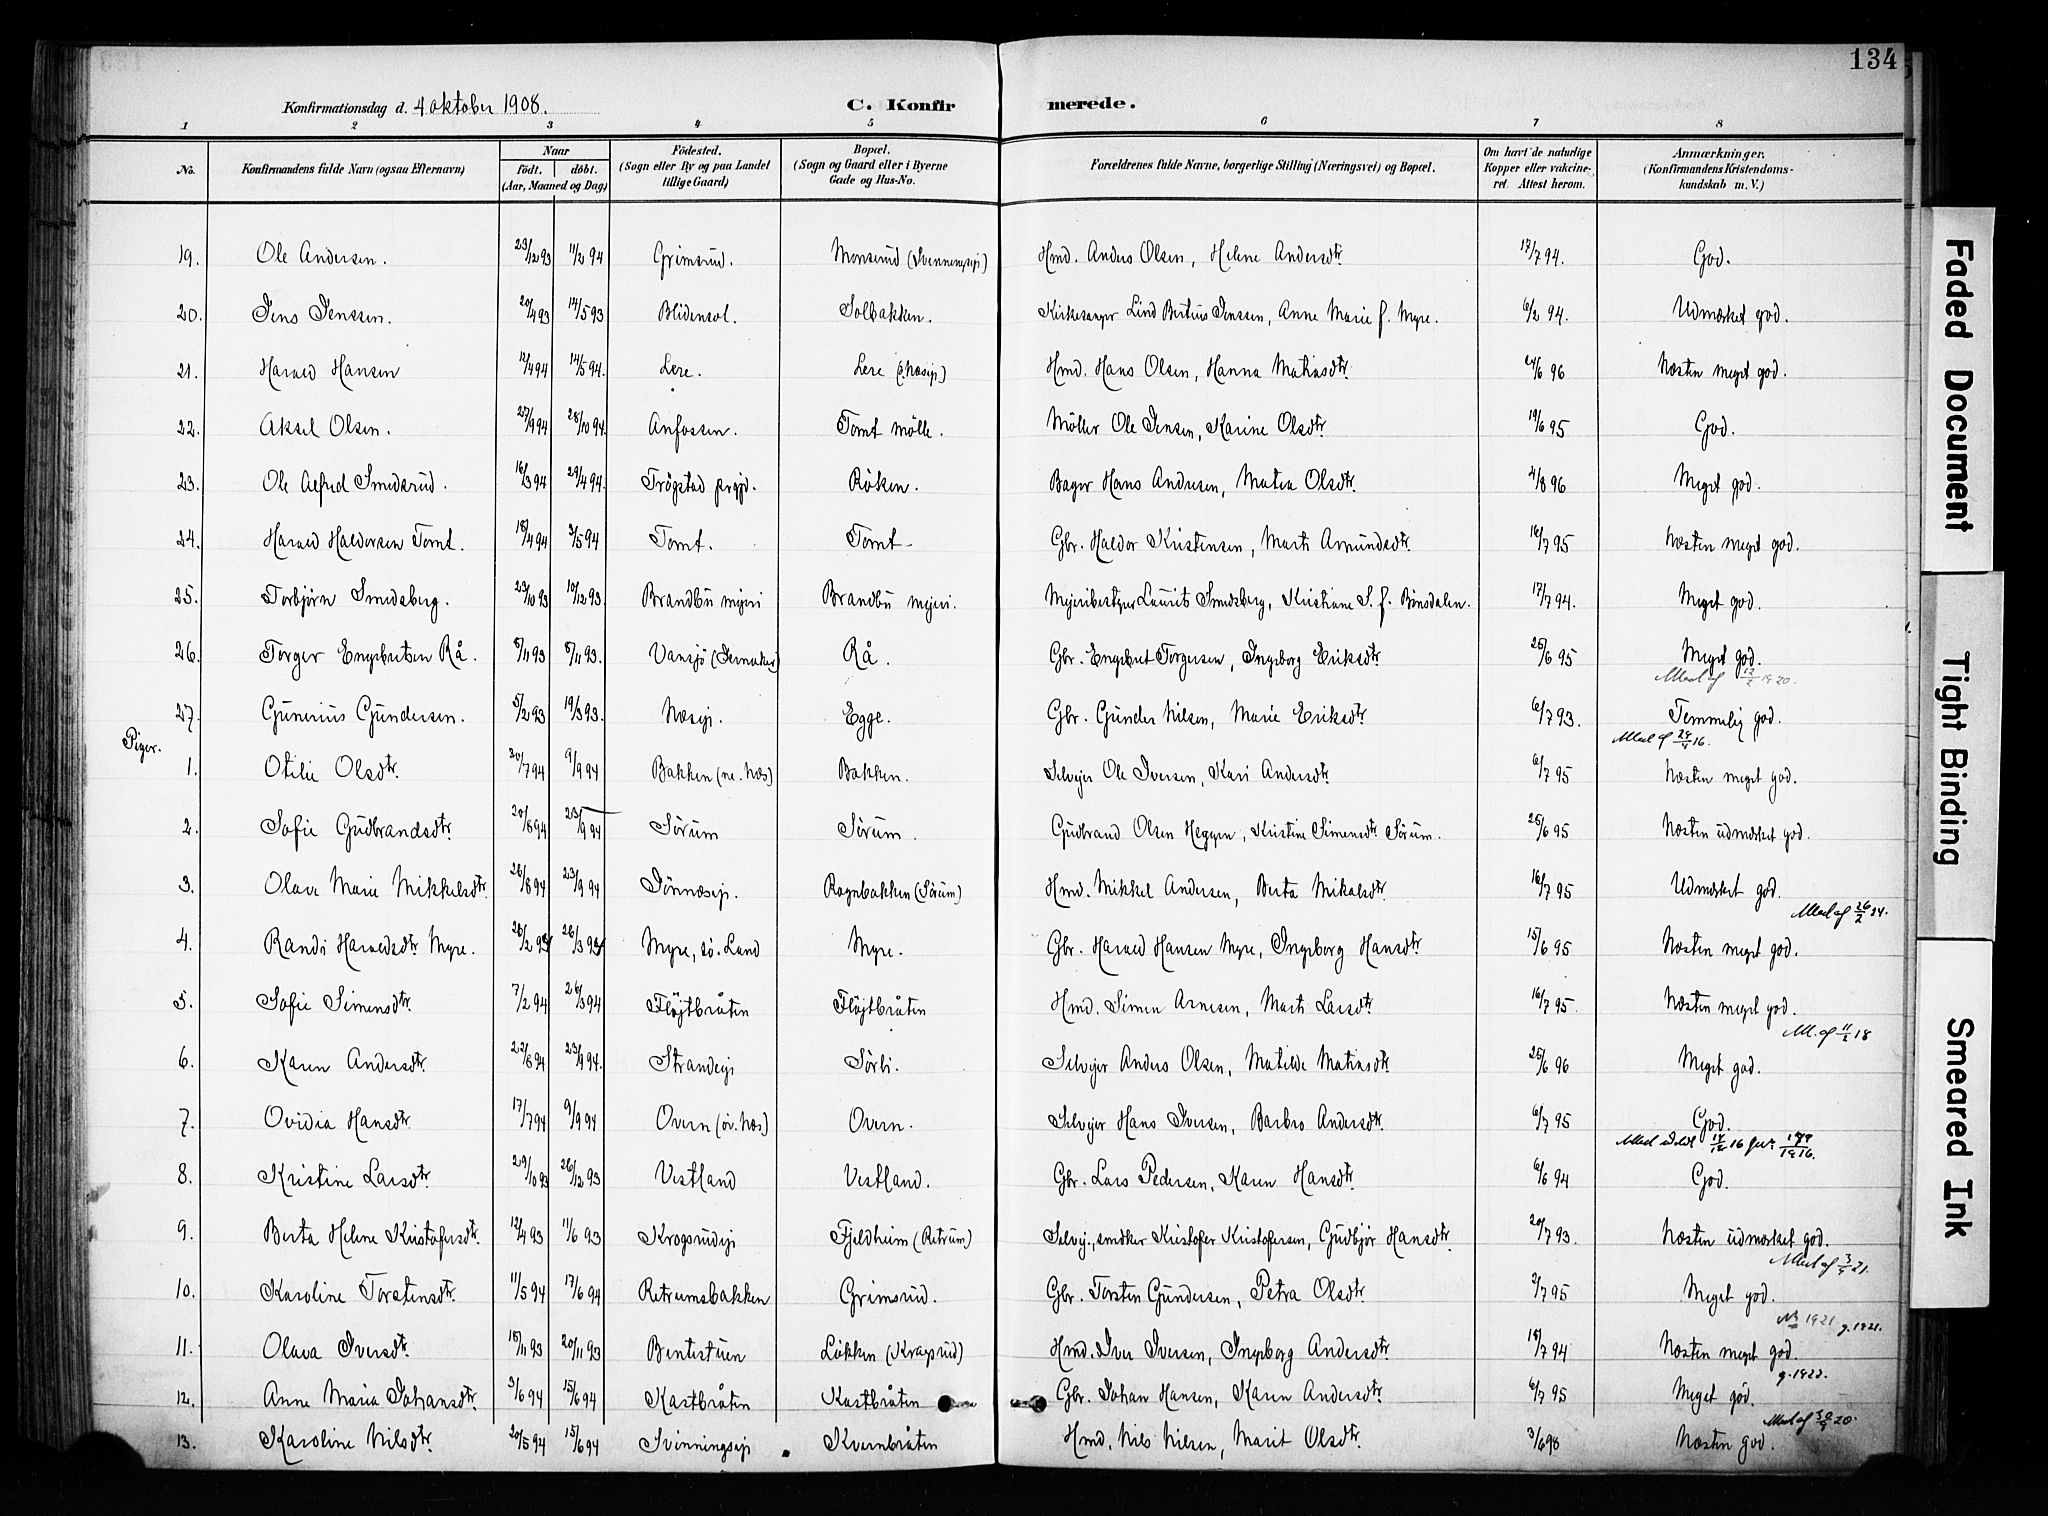 134
Konfirmationsdag d. 4 oktober 1908. C. Konfirmerede.
1 2 3 4 5 6 7 8
No. Konfirmandens fulde Navn (ogsaa Efternavn) Naar født. døbt. (Aar, Maaned og Dag) Fødested. (Sogn eller By og paa Landet tillige Gaard) Bopæl. (Sogn og Gaard eller i Byerne Gade og Hus-No. Forældrenes fulde Navne, borgerlige Stilling (Næringsvei) og Bopæl. Om havt de naturlige Kopper eller vakcineret. Attest herom. Anmærkninger. (Konfirmandens Kristendomskundskab m. V.)
19. Ole Andersen. 23/12 93 11/2 94 Grimsrud. Monserud Hmd. Anders Olsen, Helene Andersdtr. 17/7 94. God.
20. Jens Jenssen. 20/4 93 14/5 93 Blidensol. Solbakken. Kirkesanger Lind Bertius Jenssen, Anne Marie f. Myre. 6/2 94. Udmærket god.
21. Harald Hansen 12/4 94 14/5 94. Lere. Lere Hmd. Hans Olsen, Hanna Matiasdtr. 24/6 96 Næsten meget god.
22. Aksel Olsen. 27/9 94 28/10 94. Anfossen. Tomt mölle. Möller Ole Jensen, Karine Olsdtr. 19/6 95 God.
23. Ole Alfred Smedsrud. 16/3 94 29/4 94. Trögstad prgjd. Röken. Bager Hans Andresen, Matea Olsdtr. 4/8 96 Meget god.
24. Harald Haldorsen Tomt. 18/4 94 3/5 94 Tomt. Tomt Gbr. Haldor Kristensen, Marti Amundsdtr. 16/7 95 Næsten meget god.
25. Torbjörn Smedsberg. 23/10 93 10/12 93. Brandbu mejeri Brandbu mejeri. Mejeribestyrer Laurits Smedsberg, Kristiane S. f. Binsdalen. 17/7 94. Meget god.
26. Torger Engebretsen Rå. 8/11 93 8/11 93. Vansjö (Jevnaker) Rå. Gbr. Engebret Torgersen, Ingeborg Eriksdtr. 25/6 95 Meget god.
27. Gunerius Gundersen. 5/2 93 19/3 93. Næsejr. Egge. Gbr. Gunder Nilsen, Marie Eriksdtr. 6/7 93. Temmelig god.
Piger.
1. Otilie Olsdtr. 30/7 94 9/9 94 Bakken (ne. Næs) Bakken. Selvejer Ole Iversen, Kari Andersdtr. 6/7 95 Næsten meget god.
2. Sofie Gudbrandsdtr. 20/8 94 23/9 94 Sörum Sörum. Gudbrand Olsen Heggen, Kristine Simensdtr. Sörum. 25/6 95 Næsten udmærket god.
3. Olava Marie Mikkelsdtr. 26/8 94 23/9 94 Rognbakken (Sörum) Hmd. Mikkel Andersen, Berta Mikalsdtr. 16/7 95 Udmærket god.
4. Randi Haraldsdtr. Myre. 28/2 93 26/3 93 Myre, sö. Land Myre. Gbr. Harald Hansen Myre, Ingeborg Hansdtr. 15/6 95 Næsten meget god.
5. Sofie Simensdtr. 7/2 94 26/3 94 Flöjtbråten Flöjtbråten Hmd. Simen Arnesen, Marti Larsdtr. 16/7 95. Næsten meget god.
6. Karen Andersdtr. 22/8 94 23/9 94. Strandejr Sörbi. Selvejer Anders Olsen, Matilde Matiasdtr. 25/6 96 Meget god.
7. Ovidia Hansdtr. 17/7 94 9/9 94 Overn (öv. Næs) Overn. Selvejer Hans Iversen, Barbro Andersdtr. 6/7 95 God.
8. Kristine Larsdtr. 29/10 93 26/12 93 Vestland Vestland. Gbr. Lars Pedersen, Karen Hansdtr. 6/6 94 God.
9. Berta Helene Kristofersdtr. 12/4 93 11/6 93 Krogsrudejr Fjeldheim (Retrum) Selvej., snedker Kristofer Kristofersen, Gudbjör Hansdtr. 20/7 93. Næsten udmærket god.
10. Karoline Torstensdtr. 11/5 94 17/6 94 Retrumsbakken Grimsrud. Gbr. Torsten Gundersen, Petra Olsdtr. 2/7 95 Meget god.
11. Olava Iversdtr. 18/11 93 20/11 93 Bentestuen Lökken (Kragsrud) Hmd. Iver Iversen, Ingeborg Andersdtr. 18/7 94 Næsten meget god.
g. 1921.
12. Anne Maria Johansdtr. 3/6 94 15/6 94 Kastbråten Kastbråten Gbr. Johan Hansen, Karen Andersdtr. 6/7 95 Meget god.
g. 1922.
13. Karoline Nilsdtr. 20/5 94 15/6 94 Svinningsejr Kvernbråten Hmd. Nils Nilsen, Marit Olsdtr. 3/6 98 Næsten god.
Faded Document
Tight Binding
Smeared Ink